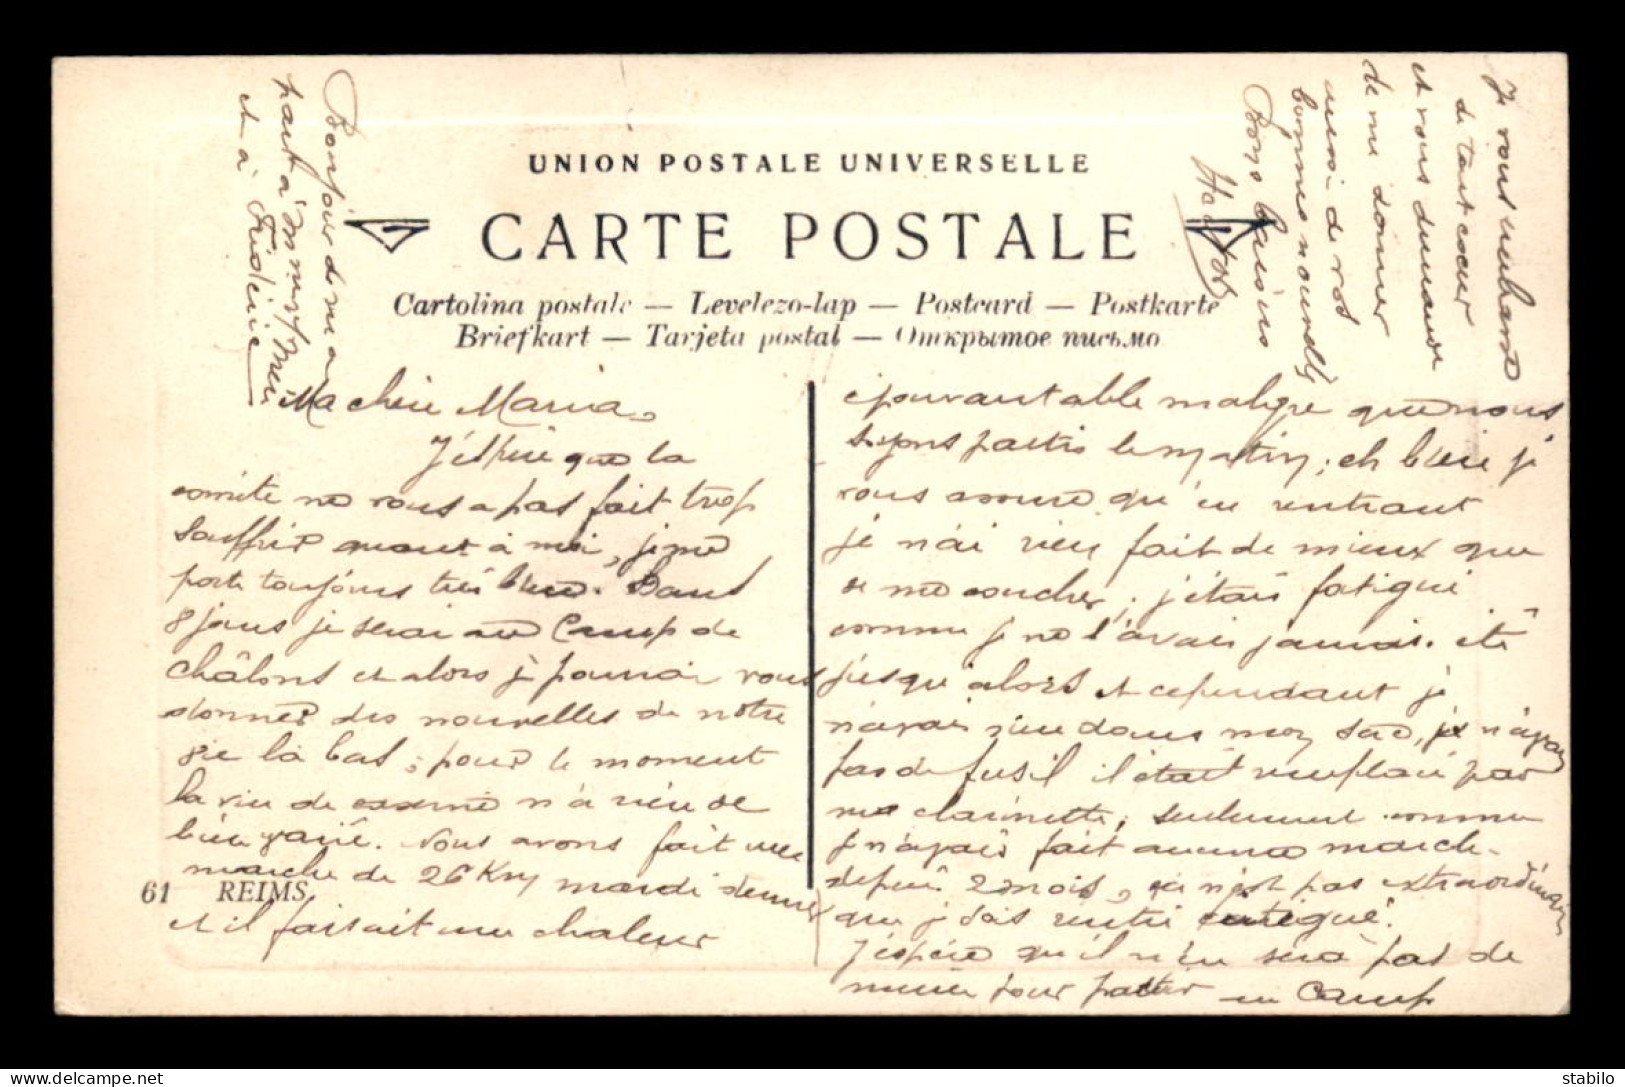 UNION POSTALE UNIVERSELLE
CARTE POSTALE
Cartolina postale — Levelezo-lap — Postcard — Postkarte
Briefkart — Tarjeta postal — Открытое письмо
Ma chère Maria,
J'espère que la
ne vous a pas fait trop
souffrir quant à moi, je me
porte toujours très bien. Dans
8 jours je serai au Camp de
châlons et alors je pourrai vous
donner des nouvelles de notre
vie là bas, pour le moment
la vie de caserne n'a rien de
bien varié. Nous avons fait une
marche de 26 Km mardi dernier
et il faisait une chaleur
61 REIMS
épouvantable malgré que nous
soyons partis le matin; eh bien je
vous assure qu'en rentrant
je n'ai rien fait de mieux que
de me coucher, j'étais fatigué
comme je ne l'avais jamais été
jusqu'alors et cependant je
n'avais rien dans mon sac, je n'avais
pas de fusil il était remplacé par
ma clarinette, seulement comme
je n'avais fait aucune marche
depuis 2 mois, ça n'est pas extraordinaire
que je sois rentré fatigué.
J'espère qu'il n'en sera pas de
même pour partir au Camp
Je vous embrasse
de tout coeur
et vous demande
de me donner
aussi de vos
bonnes nouvelles
Bons baisers
Bonjour de ma
part à Mr et Mme
et à